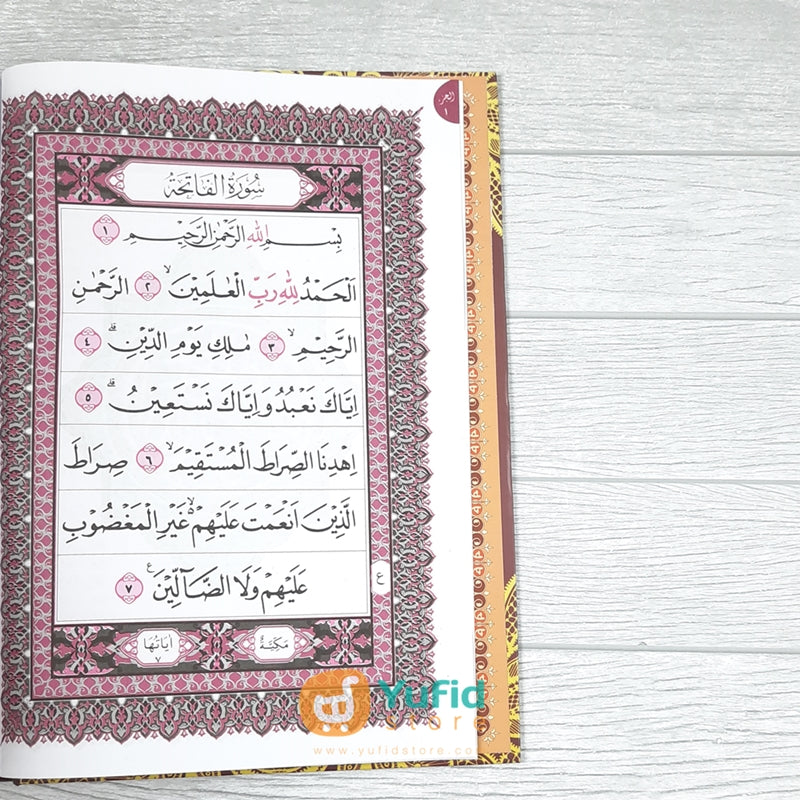 الجزء
١
سُورَةُ الْفَاتِحَةُ
بِسْمِ اللهِ الرَّحْمٰنِ الرَّحِيْمِ ١
اَلْحَمْدُ لِلّٰهِ رَبِّ الْعٰلَمِيْنَۙ ٢ الرَّحْمٰنِ
الرَّحِيْمِۙ ٣ مٰلِكِ يَوْمِ الدِّيْنِۗ ٤
اِيَّاكَ نَعْبُدُ وَاِيَّاكَ نَسْتَعِيْنُۗ ٥
اِهْدِنَا الصِّرَاطَ الْمُسْتَقِيْمَۙ ٦ صِرَاطَ
الَّذِيْنَ اَنْعَمْتَ عَلَيْهِمْۙ غَيْرِ الْمَغْضُوْبِ
عَلَيْهِمْ وَلَا الضَّاۤلِّيْنَ ࣖ ٧
ع
مَكِّيَّةٌ
اٰيَاتُهَا
٧
Yufid
store
www.yufidstore.com